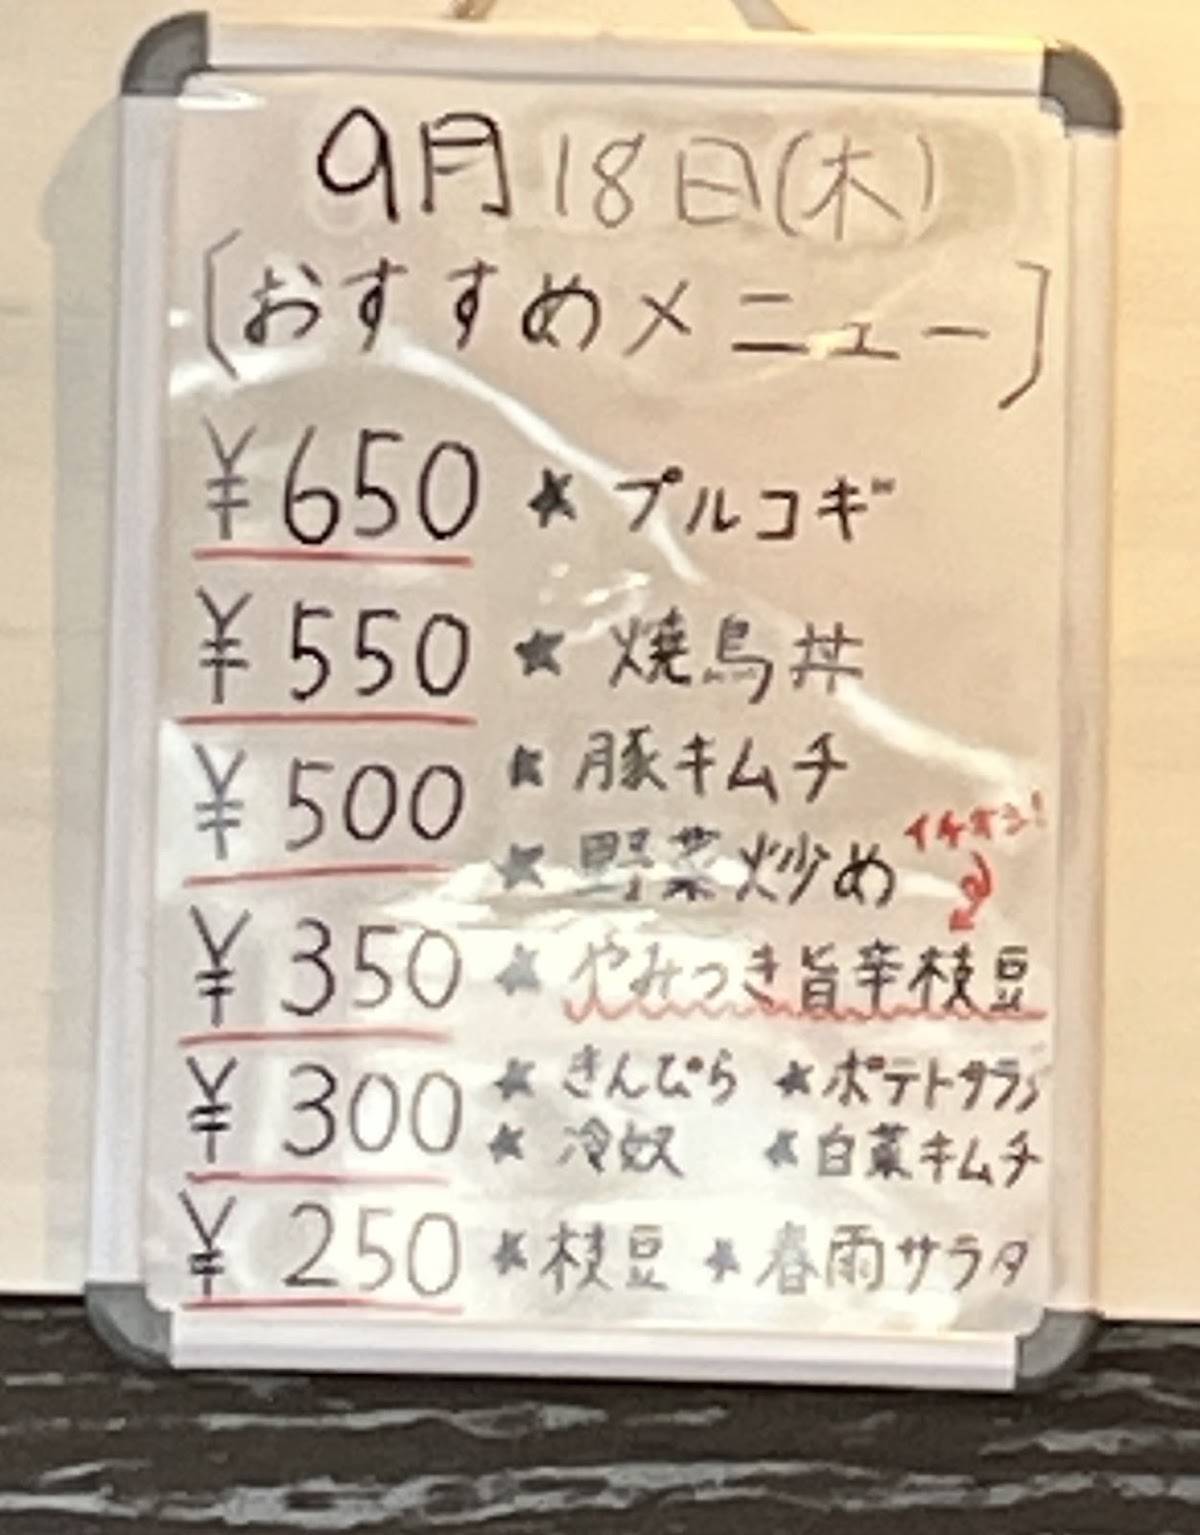 9月18日(木)
[おすすめメニュー]
¥650 ★プルコギ
¥550 ★焼鳥丼
¥500 ★豚キムチ
★野菜炒め
イチオシ!
¥350 ★やみつき旨辛枝豆
¥300 ★きんぴら ★ポテトサラダ
★冷奴 ★白菜キムチ
¥250 ★枝豆 ★春雨サラダ